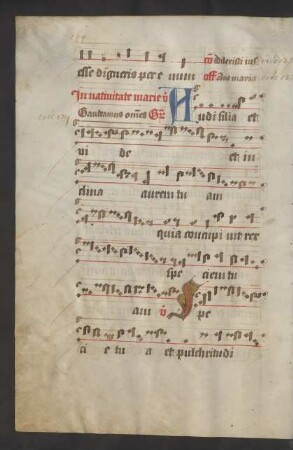 esse digneris per e num
co dilexisti ius
off Aue maria
In natiuitate marie
Gaudeamus om̄es Gr̄
Audi filia et
vi de et in
clina aurem tu am
quia concupi uit rex
spe ciem tu
am v̄ Spe
ci e tu a et pulchritudi